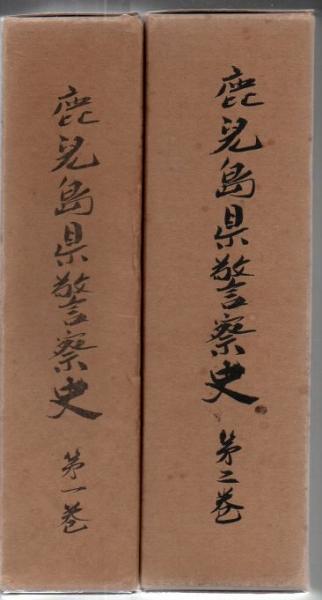 鹿児島県警察史 第一巻
鹿児島県警察史 第二巻